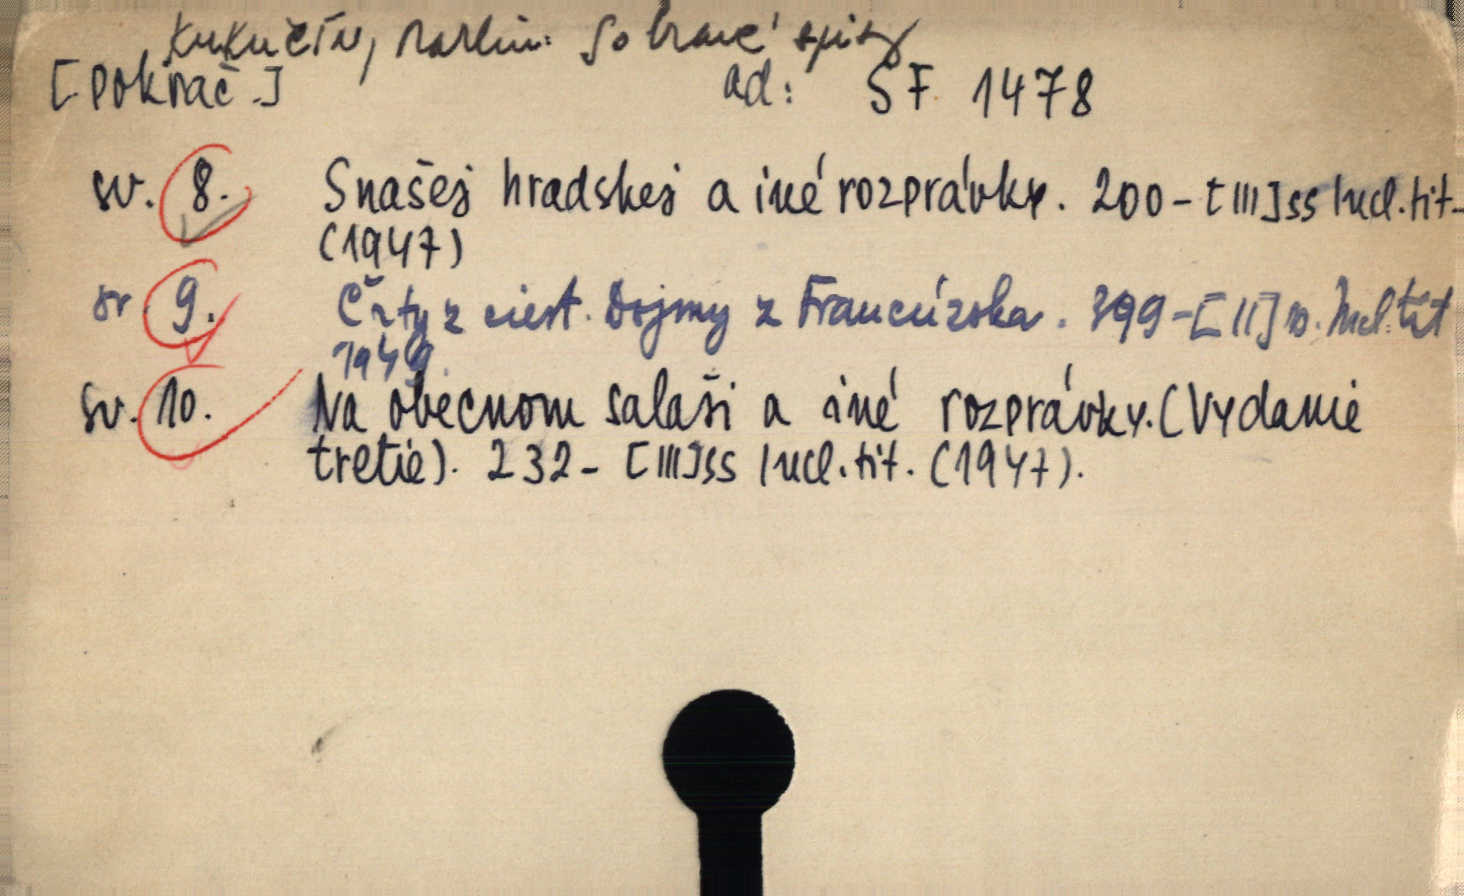 Kukučín, Martin: Sobrané spisy
[Pokrač.] ad: SF 1478
sv. 8. Snašej hradskej a iné rozprávky. 200-[III]ss Incl. tit.
(1947)
sv. 9. Črty z ciest. Dojmy z Francúzska. 399-[II]s. Incl. tit
1949.
sv. 10. Na obecnom salaši a iné rozprávky. (Vydanie
tretie). 232- [III]ss Incl. tit. (1947).